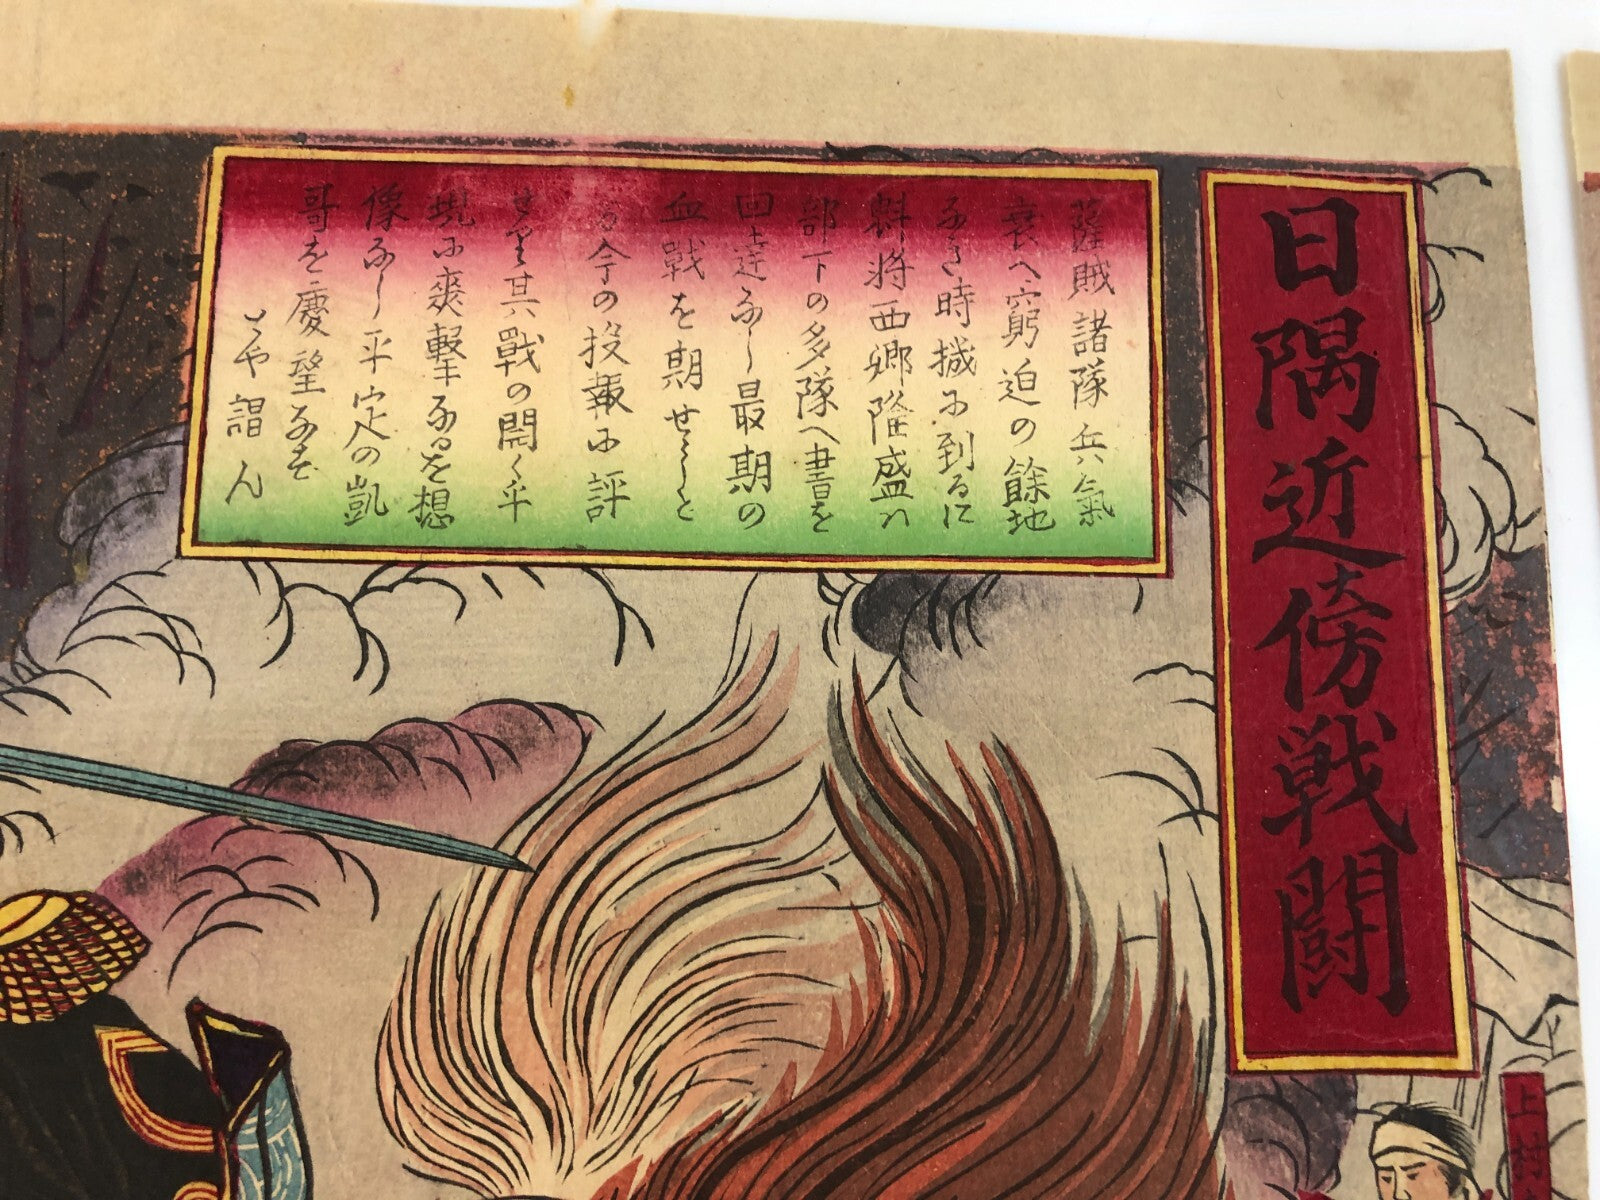 日隅近傍戦闘
薩賊諸隊兵氣
衰へ窮迫の餘地
なき時搣に到るに
斟将西郷隆盛ハ
部下の多隊へ書を
回達なし最期の
血戦を期せしと
今の投報に評
せり其戰の開く乎
塊に爽撃なるを想
像なし平定の凱
哥を慶望なすを
とや謂ん
上村